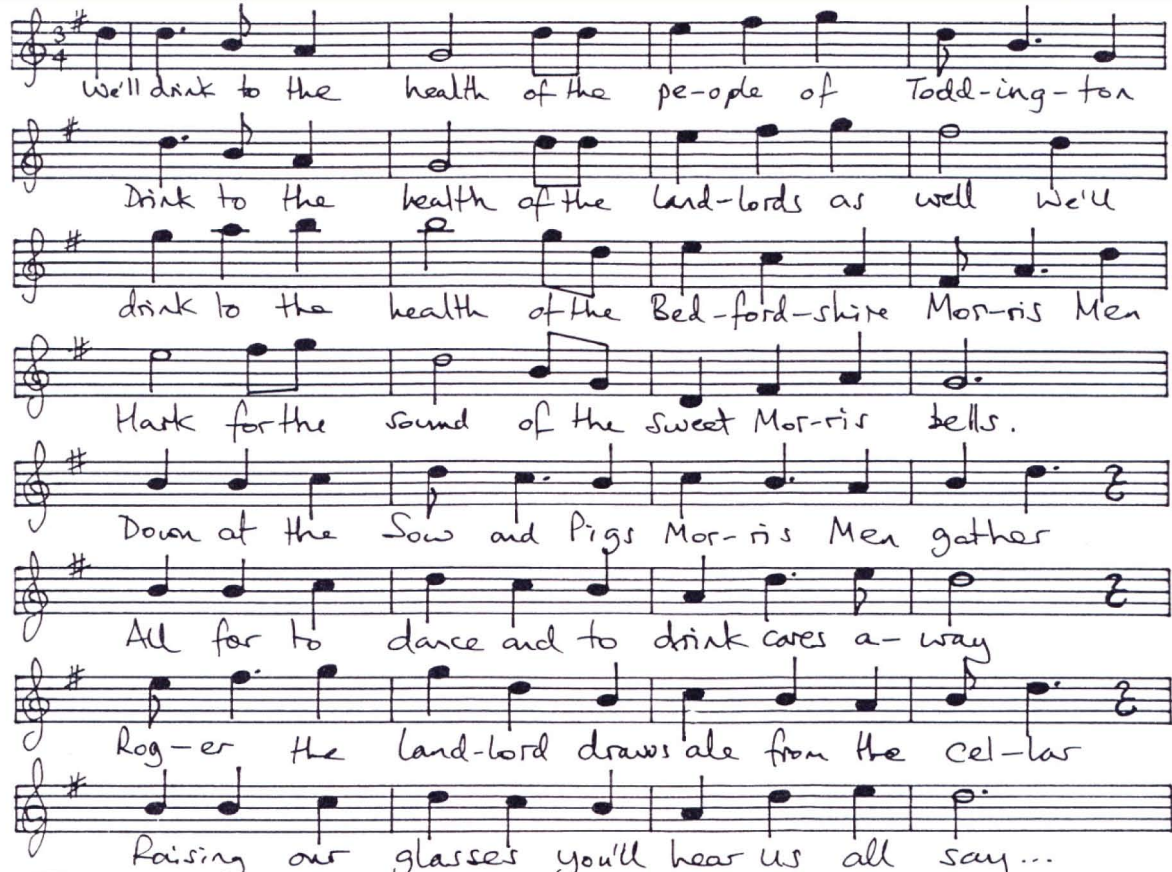 3
4
We'll drink to the health of the pe-ople of Todd-ing-ton
Drink to the health of the land-lords as well we'll
drink to the health of the Bed-ford-shire Mor-ris Men
Hark for the sound of the sweet Mor-ris bells.
Down at the Sow and Pigs Mor-ris Men gather
All for to dance and to drink cares a-way
Rog-er the land-lord draws ale from the cel-lar
Raising our glasses you'll hear us all say...